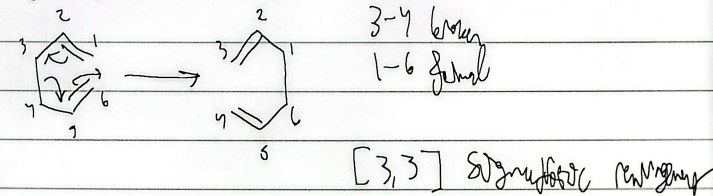 3-4 broken
1-6 formed
2 2
3 1 3 1
4 5 6 4 6
5
[3,3] sigmatropic rearrangement